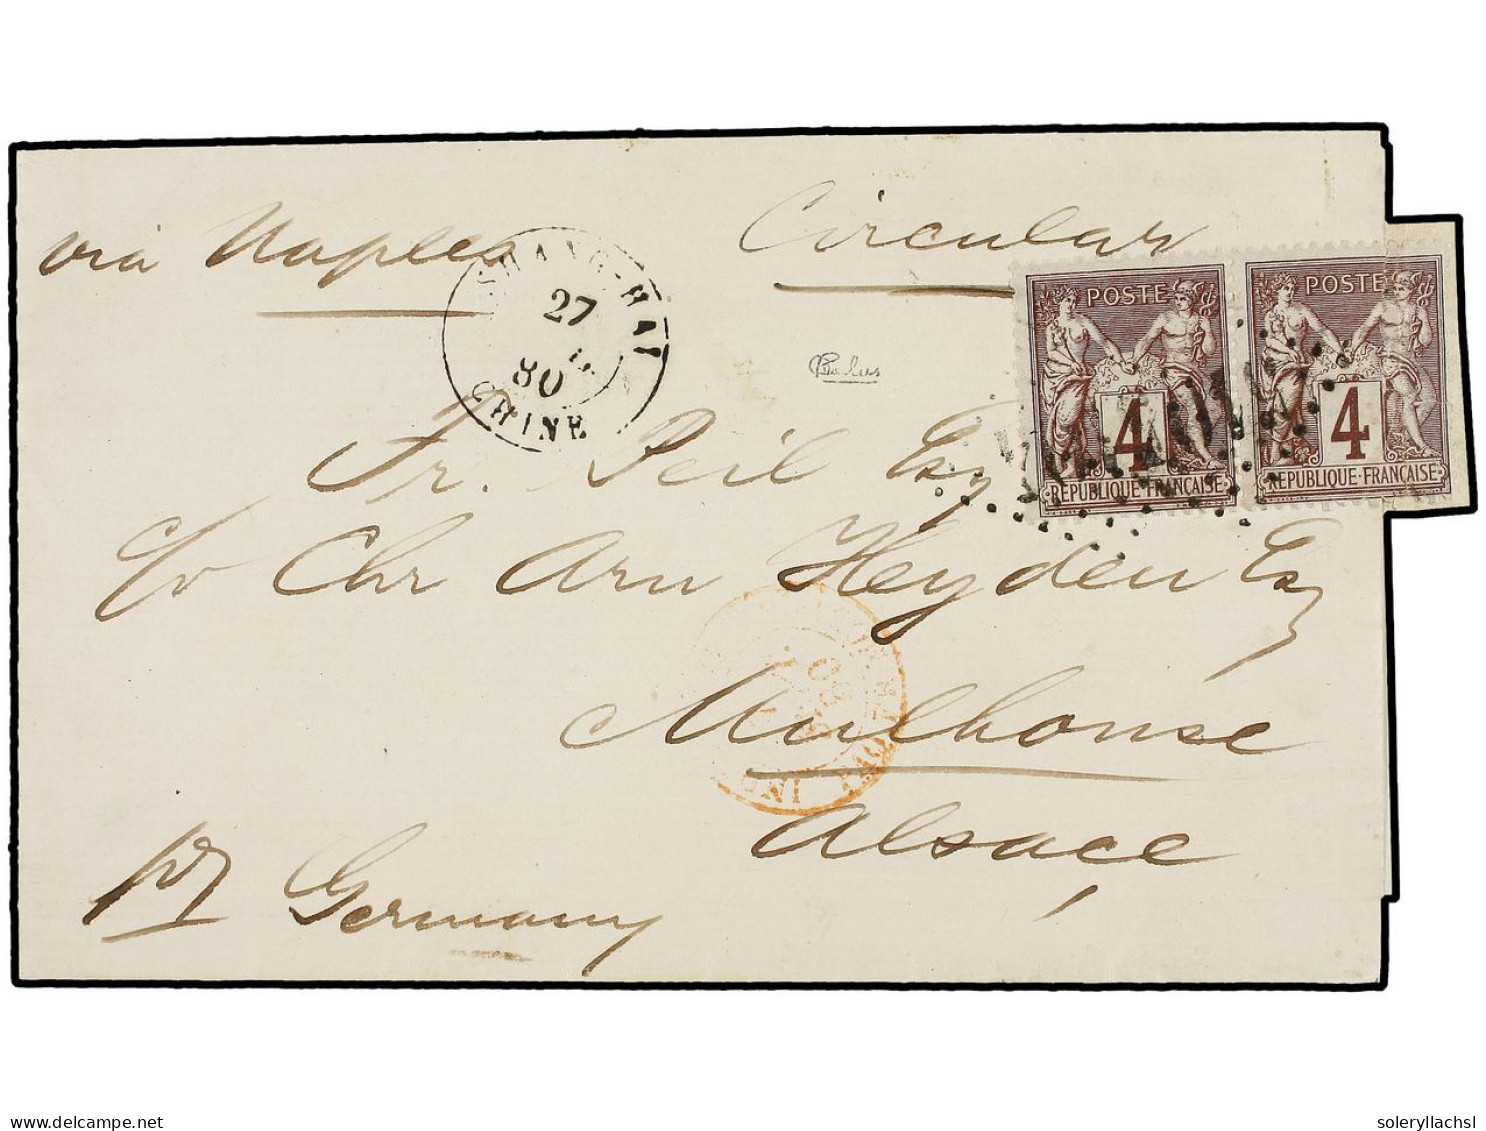 via Naples
Circular
SHANG-HAI
27
80
CHINE
POSTE
4
REPUBLIQUE·FRANÇAISE
POSTE
4
REPUBLIQUE·FRANÇAISE
Fr. Peil Esq
c/o Chr Arn Heyden Esq
Mulhouse
Alsace
pr Germany
PAQ. FR.
delcampe.net
soleryllachsl